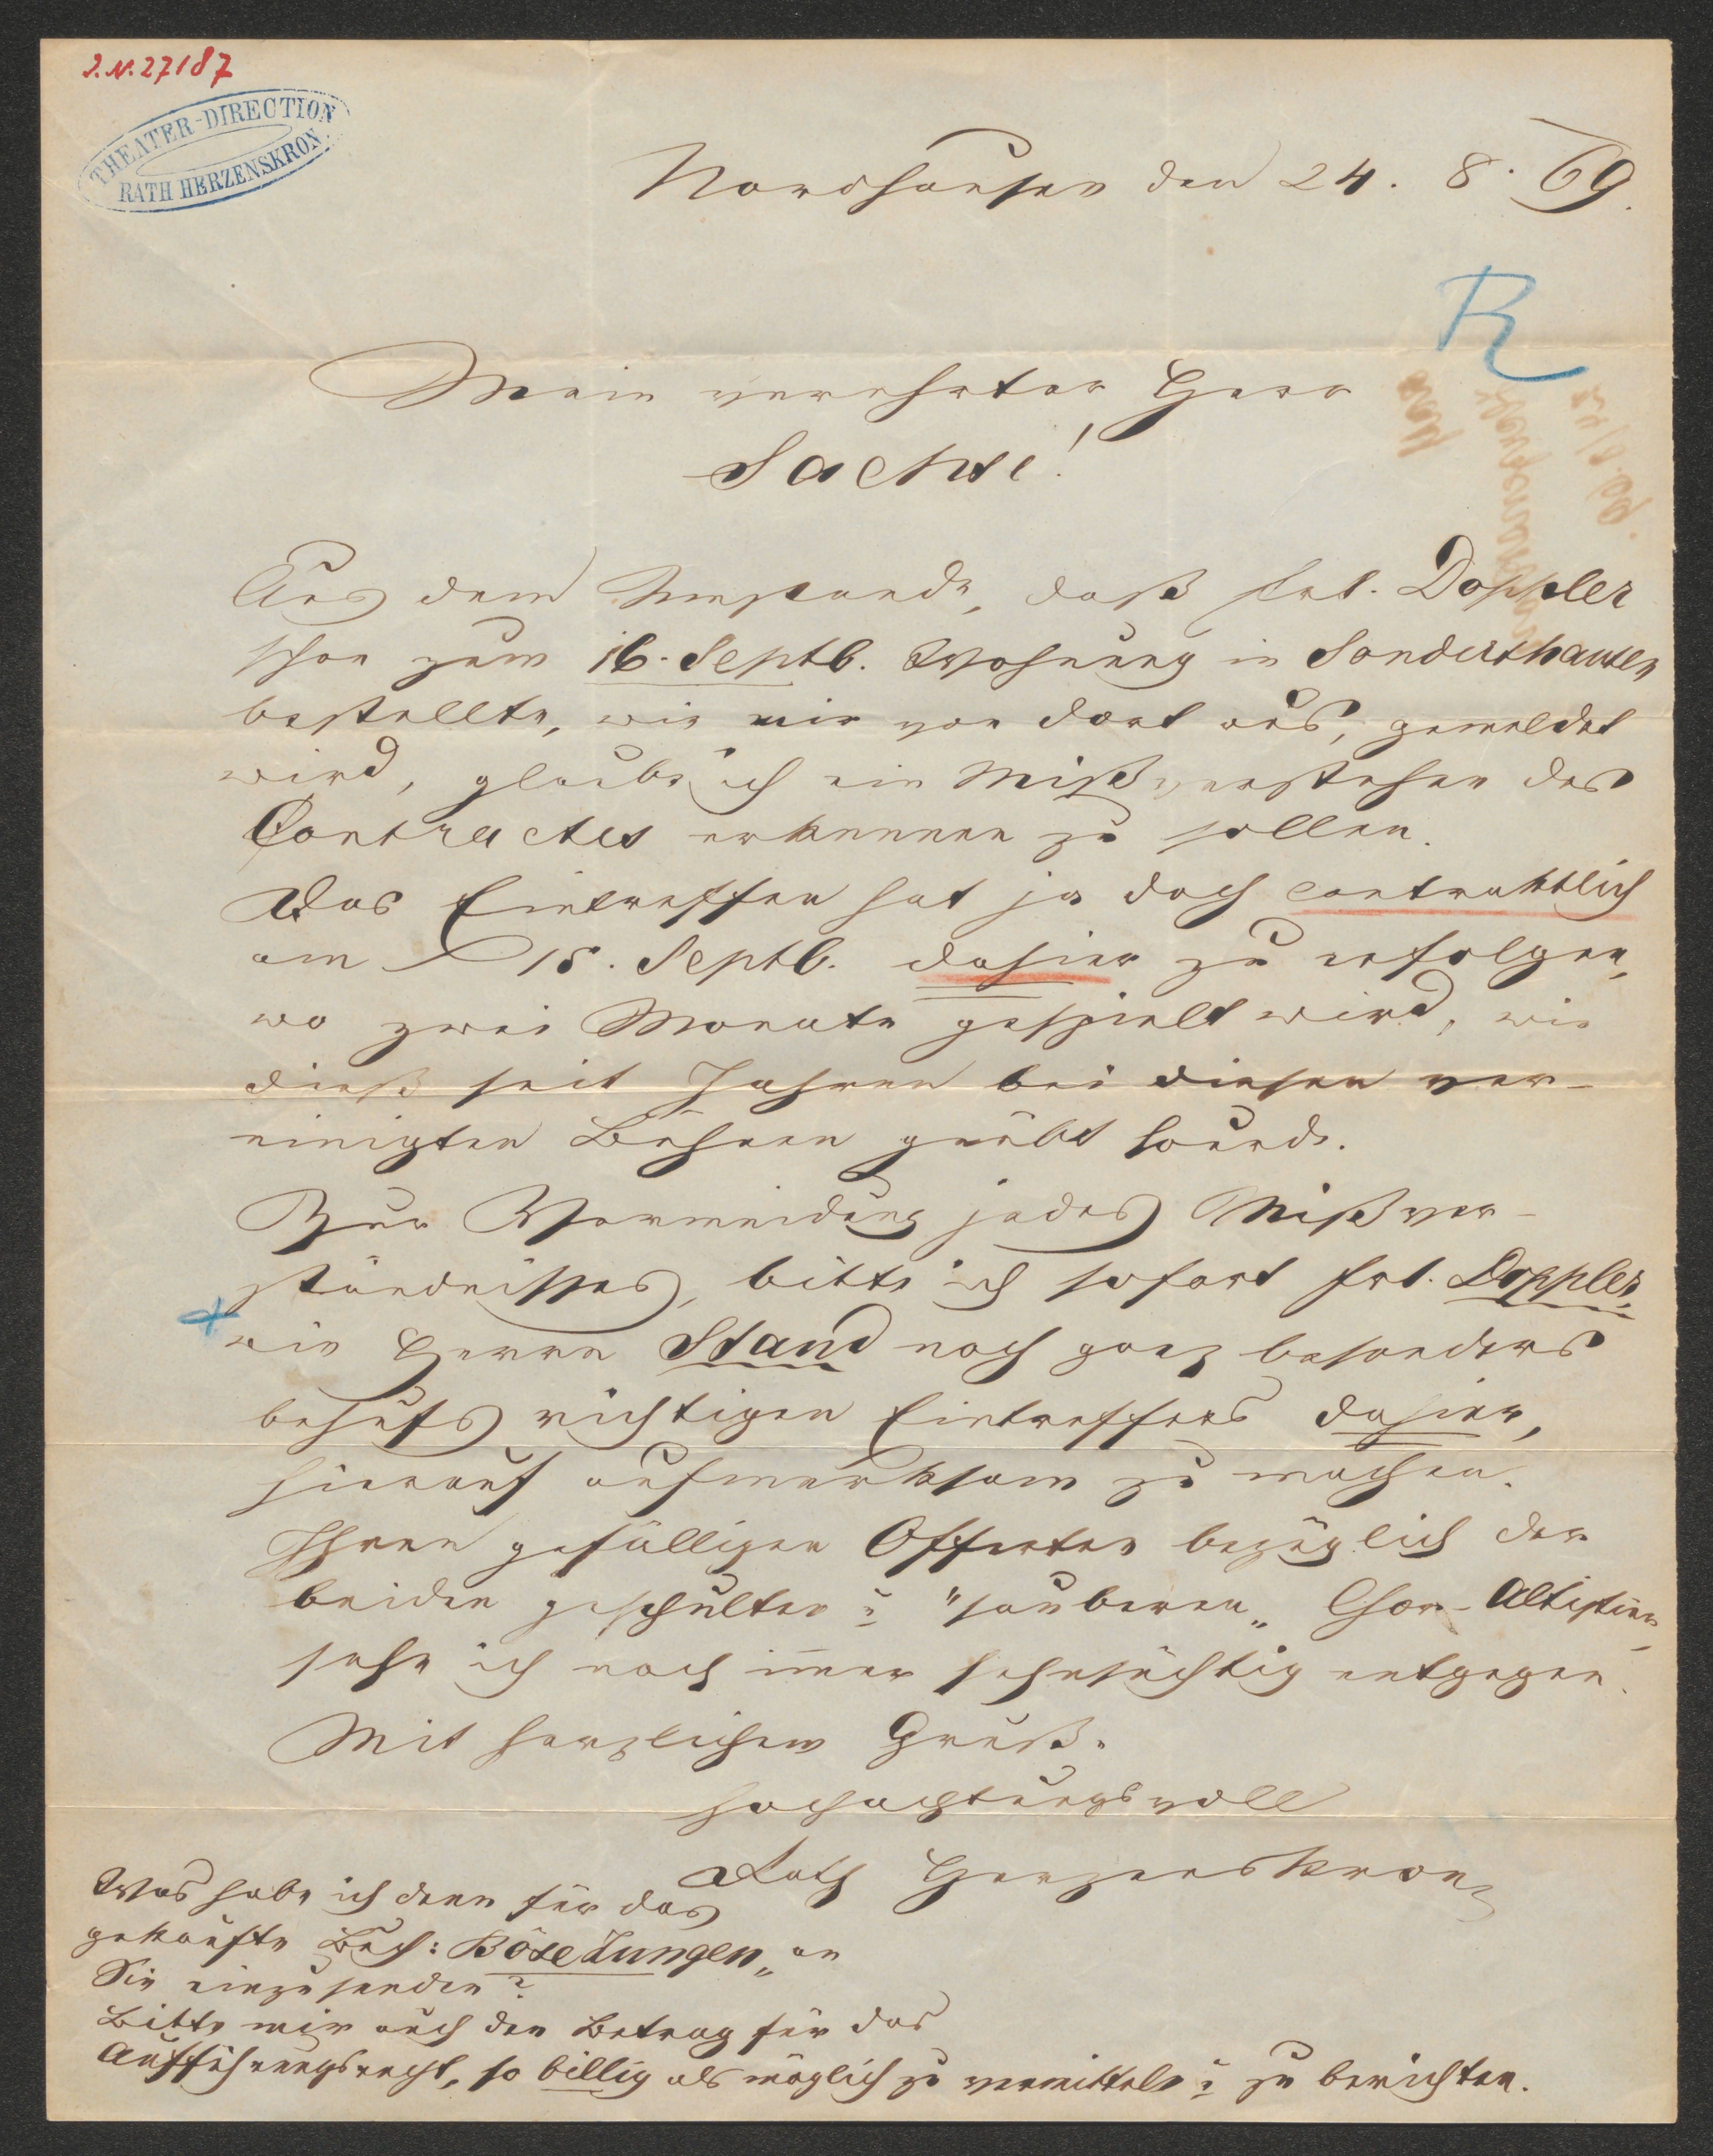 J.N. 27187
THEATER-DIRECTION
RATH HERZENSKRON.
Nordhausen den 24. 8. 69.
R
Mein verehrter Herr
Sachse!
Aus dem Umstande, daß Frl. Doppler
schon zum 16. Septb. Wohnung in Sondershausen
bestellte, wie mir von dort aus, gemeldet
wird, glaube ich ein Mißverstehen des
Contractes erkennen zu sollen.
Das Eintreffen hat ja doch contraktlich
am 15. Septb. dahier zu erfolgen,
wo zwei Monate gespielt wird, wie
dieß seit Jahren bei diesen ver-
einigten Bühnen geübt wurde.
Zur Vermeidung jedes Mißver-
ständnisses, bitte ich sofort Frl. Doppler,
wie Herrn Stand noch ganz besonders
behufs richtigen Eintreffens dahier,
hierauf aufmerksam zu machen.
Ihren gefälligen Offerten bezüglich der
beiden geschulten u "sauberen" Chor-Altistinen,
sehe ich noch imer sehnsüchtig entgegen.
Mit herzlichem Gruß.
hochachtungsvoll
Rath Herzenskron
Was habe ich denn für das
gekaufte Buch: Böse Zungen" an
Sie einzusenden?
Bitte mir auch den Betrag für das
Aufführungsrecht, so billig als möglich zu vermitteln u zu berichten.